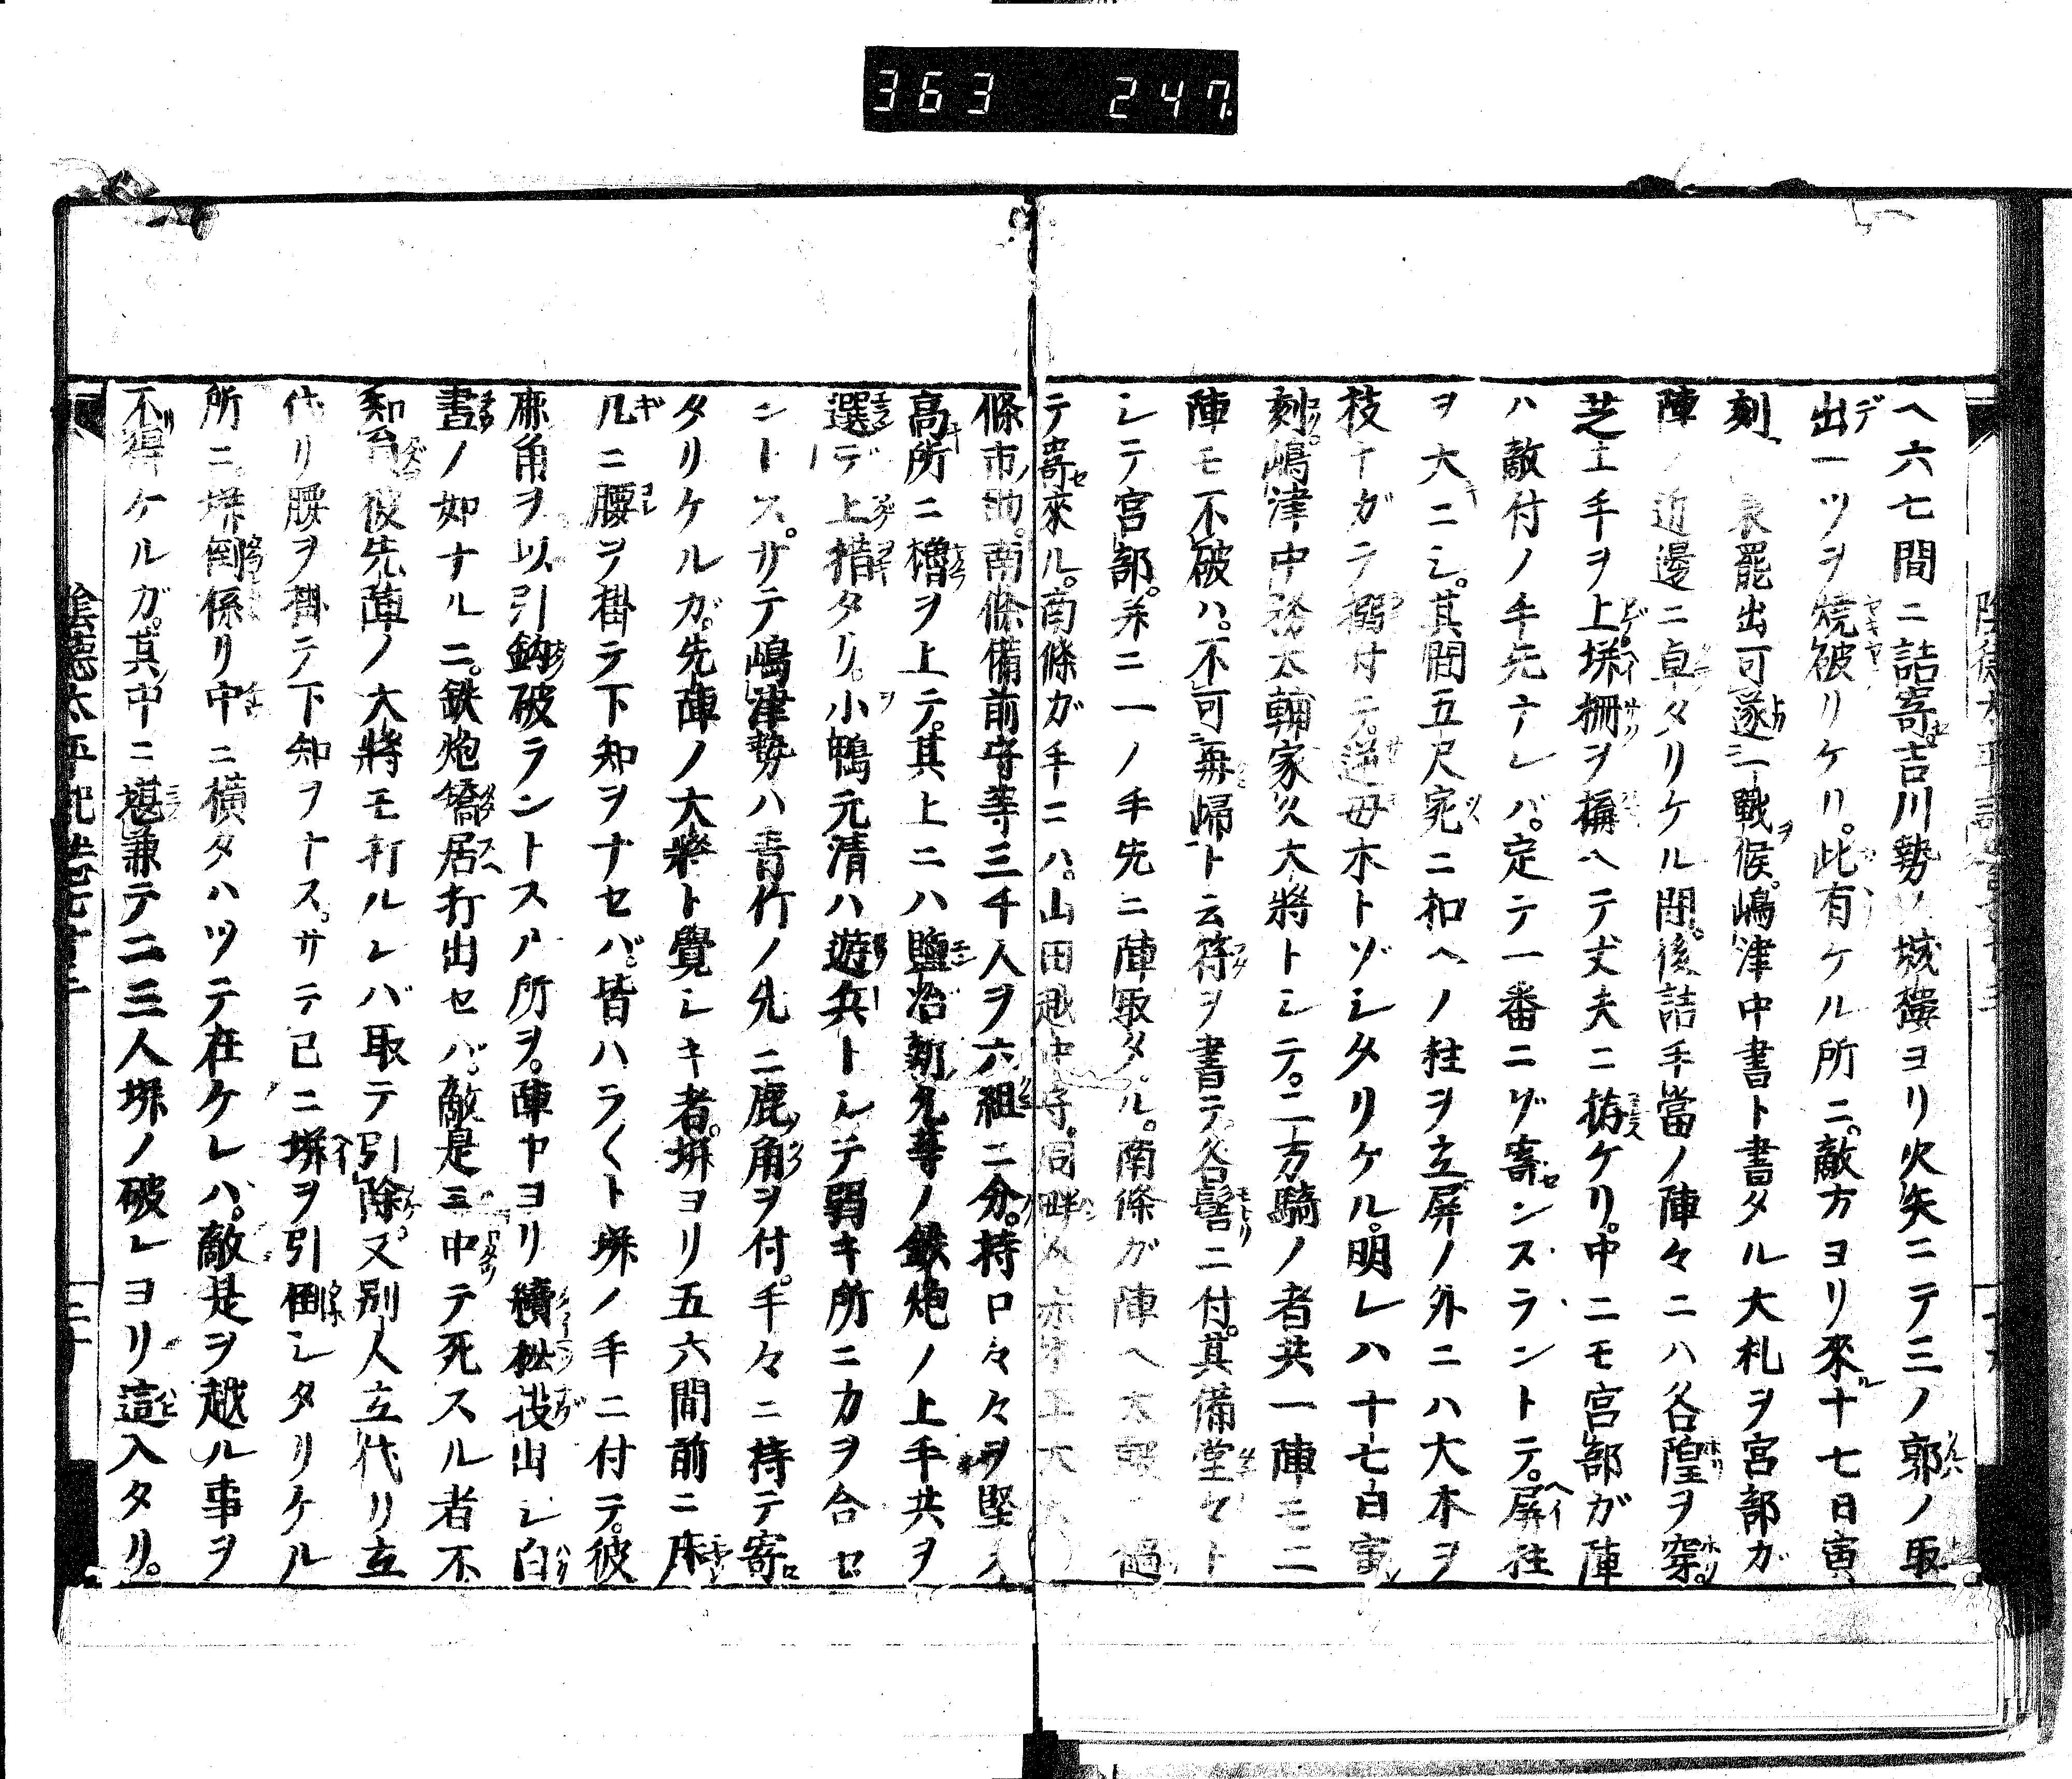 363 247
ヘ六七間ニ詰寄。吉川勢ノ城樓ヨリ火矢ニテ三ノ郭ノ取
出一ツヲ燒破リケリ。此有ケル所ニ。敵方ヨリ來十七日寅
刻 罷出可遂一戰候。嶋津中書ト書タル大札ヲ宮部ガ
陣ノ近邊ニ卓タリケル間。後詰手當ノ陣々ニハ各隍ヲ穿。
芝土手ヲ上塀柵ヲ構ヘテ丈夫ニ拵ケリ。中ニモ宮部ガ陣
ハ敵付ノ手先ナレバ。定テ一番ニゾ寄ンスラントテ。屏柱
ヲ大ニシ。其間五尺宛ニ扣ヘノ柱ヲ立屏ノ外ニハ大木ヲ
枝ナガラ 付テ。逆母木トゾシタリケル。明レハ十七日寅
刻。嶋津中務太輔家久大將トシテ。二万騎ノ者共一陣モ二
陣モ不破ハ。不可再歸ト云符ヲ書テ。各髻ニ付。其備堂々ト
シテ宮部。 ニ一ノ手先ニ陣取タル。南條ガ陣ヘ
テ寄來ル。南條ガ手ニハ。山田越中守。同
條市助。南條備前守等三千人ヲ六組ニ分。持口々々ヲ堅
高所ニ櫓ヲ上テ。其上ニハ鹽冶新九等ノ鉄炮ノ上手共ヲ
選デ上 タリ。小鴨元清ハ遊兵トシテ弱キ所ニ力ヲ合セ
ントス。サテ嶋津勢ハ青竹ノ先ニ鹿角ヲ付。手々ニ持テ寄
タリケルガ。先陣ノ大將ト覺シキ者。塀ヨリ五六間前ニ床
几ニ腰ヲ掛テ下知ヲナセバ。皆ハラ〱ト塀ノ手ニ付テ。彼
麻角ヲ以引鈎破ラントスル所ヲ。陣中ヨリ續松投出シ白
晝ノ如ナルニ。鉄炮 居打出セバ。敵是ニ中テ死スル者不
知 。彼先陣ノ大將モ打ルレバ取テ引除。又別人立代リ立
代リ腰ヲ掛テ下知ヲナス。サテ已ニ塀ヲ引倒シタリケル
所ニ。塀倒係リ中ニ横タハツテ在ケレハ。敵是ヲ越ル事ヲ
不得ケルガ。其中ニ 兼テ二三人塀ノ破レヨリ這入タリ。
陰德太平記卷